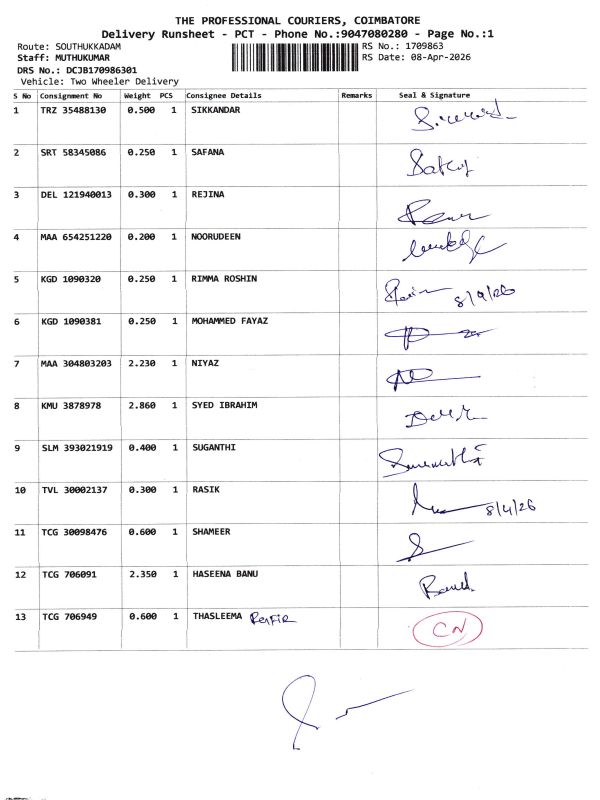 THE PROFESSIONAL COURIERS, COIMBATORE
Delivery Runsheet - PCT - Phone No.:9047080280 - Page No.:1
Route: SOUTHUKKADAM
RS No.: 1709863
Staff: MUTHUKUMAR
RS Date: 08-Apr-2026
DRS No.: DCJB170986301
Vehicle: Two Wheeler Delivery
S No Consignment No Weight PCS Consignee Details Remarks Seal & Signature
1 TRZ 35488130 0.500 1 SIKKANDAR
2 SRT 58345086 0.250 1 SAFANA
3 DEL 121940013 0.300 1 REJINA
4 MAA 654251220 0.200 1 NOORUDEEN
5 KGD 1090320 0.250 1 RIMMA ROSHIN
6 KGD 1090381 0.250 1 MOHAMMED FAYAZ
7 MAA 304803203 2.230 1 NIYAZ
8 KMU 3878978 2.860 1 SYED IBRAHIM
9 SLM 393021919 0.400 1 SUGANTHI
10 TVL 30002137 0.300 1 RASIK 8/4/26
11 TCG 30098476 0.600 1 SHAMEER
12 TCG 706091 2.350 1 HASEENA BANU
13 TCG 706949 0.600 1 THASLEEMA CN